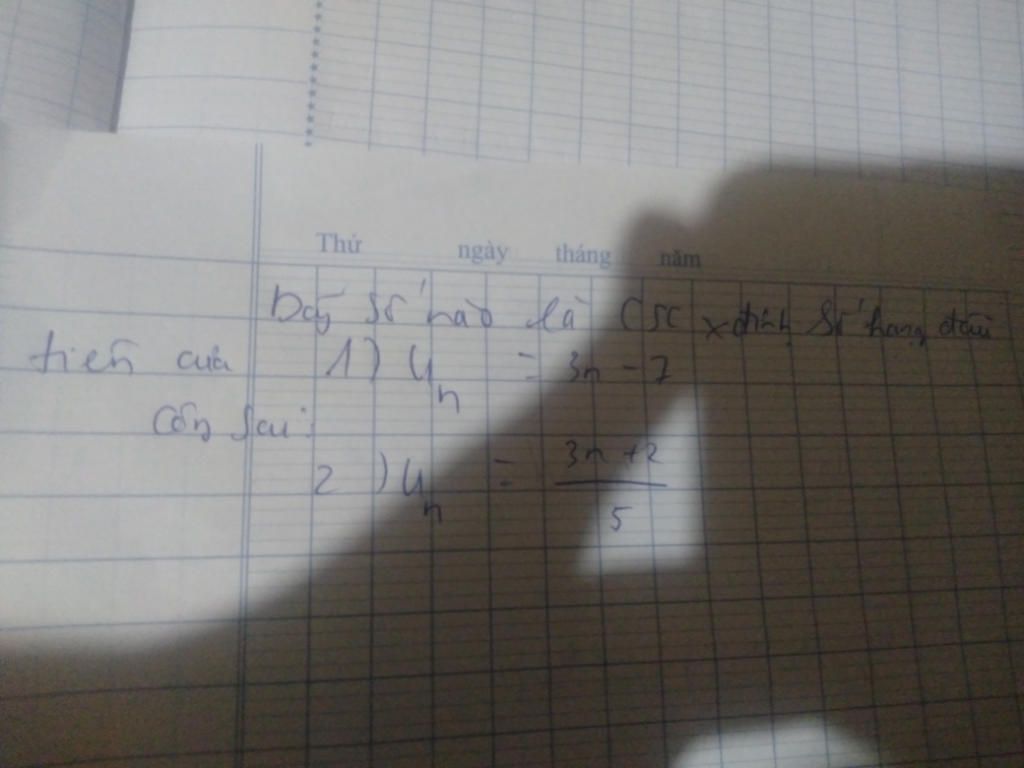 Thứ ngày tháng năm
Dãy số nào là CSC xđịnh số hạng đầu
tiên của 1) Un = 3n - 7
Công sai:
2) Un = \frac{3n + 2}{5}